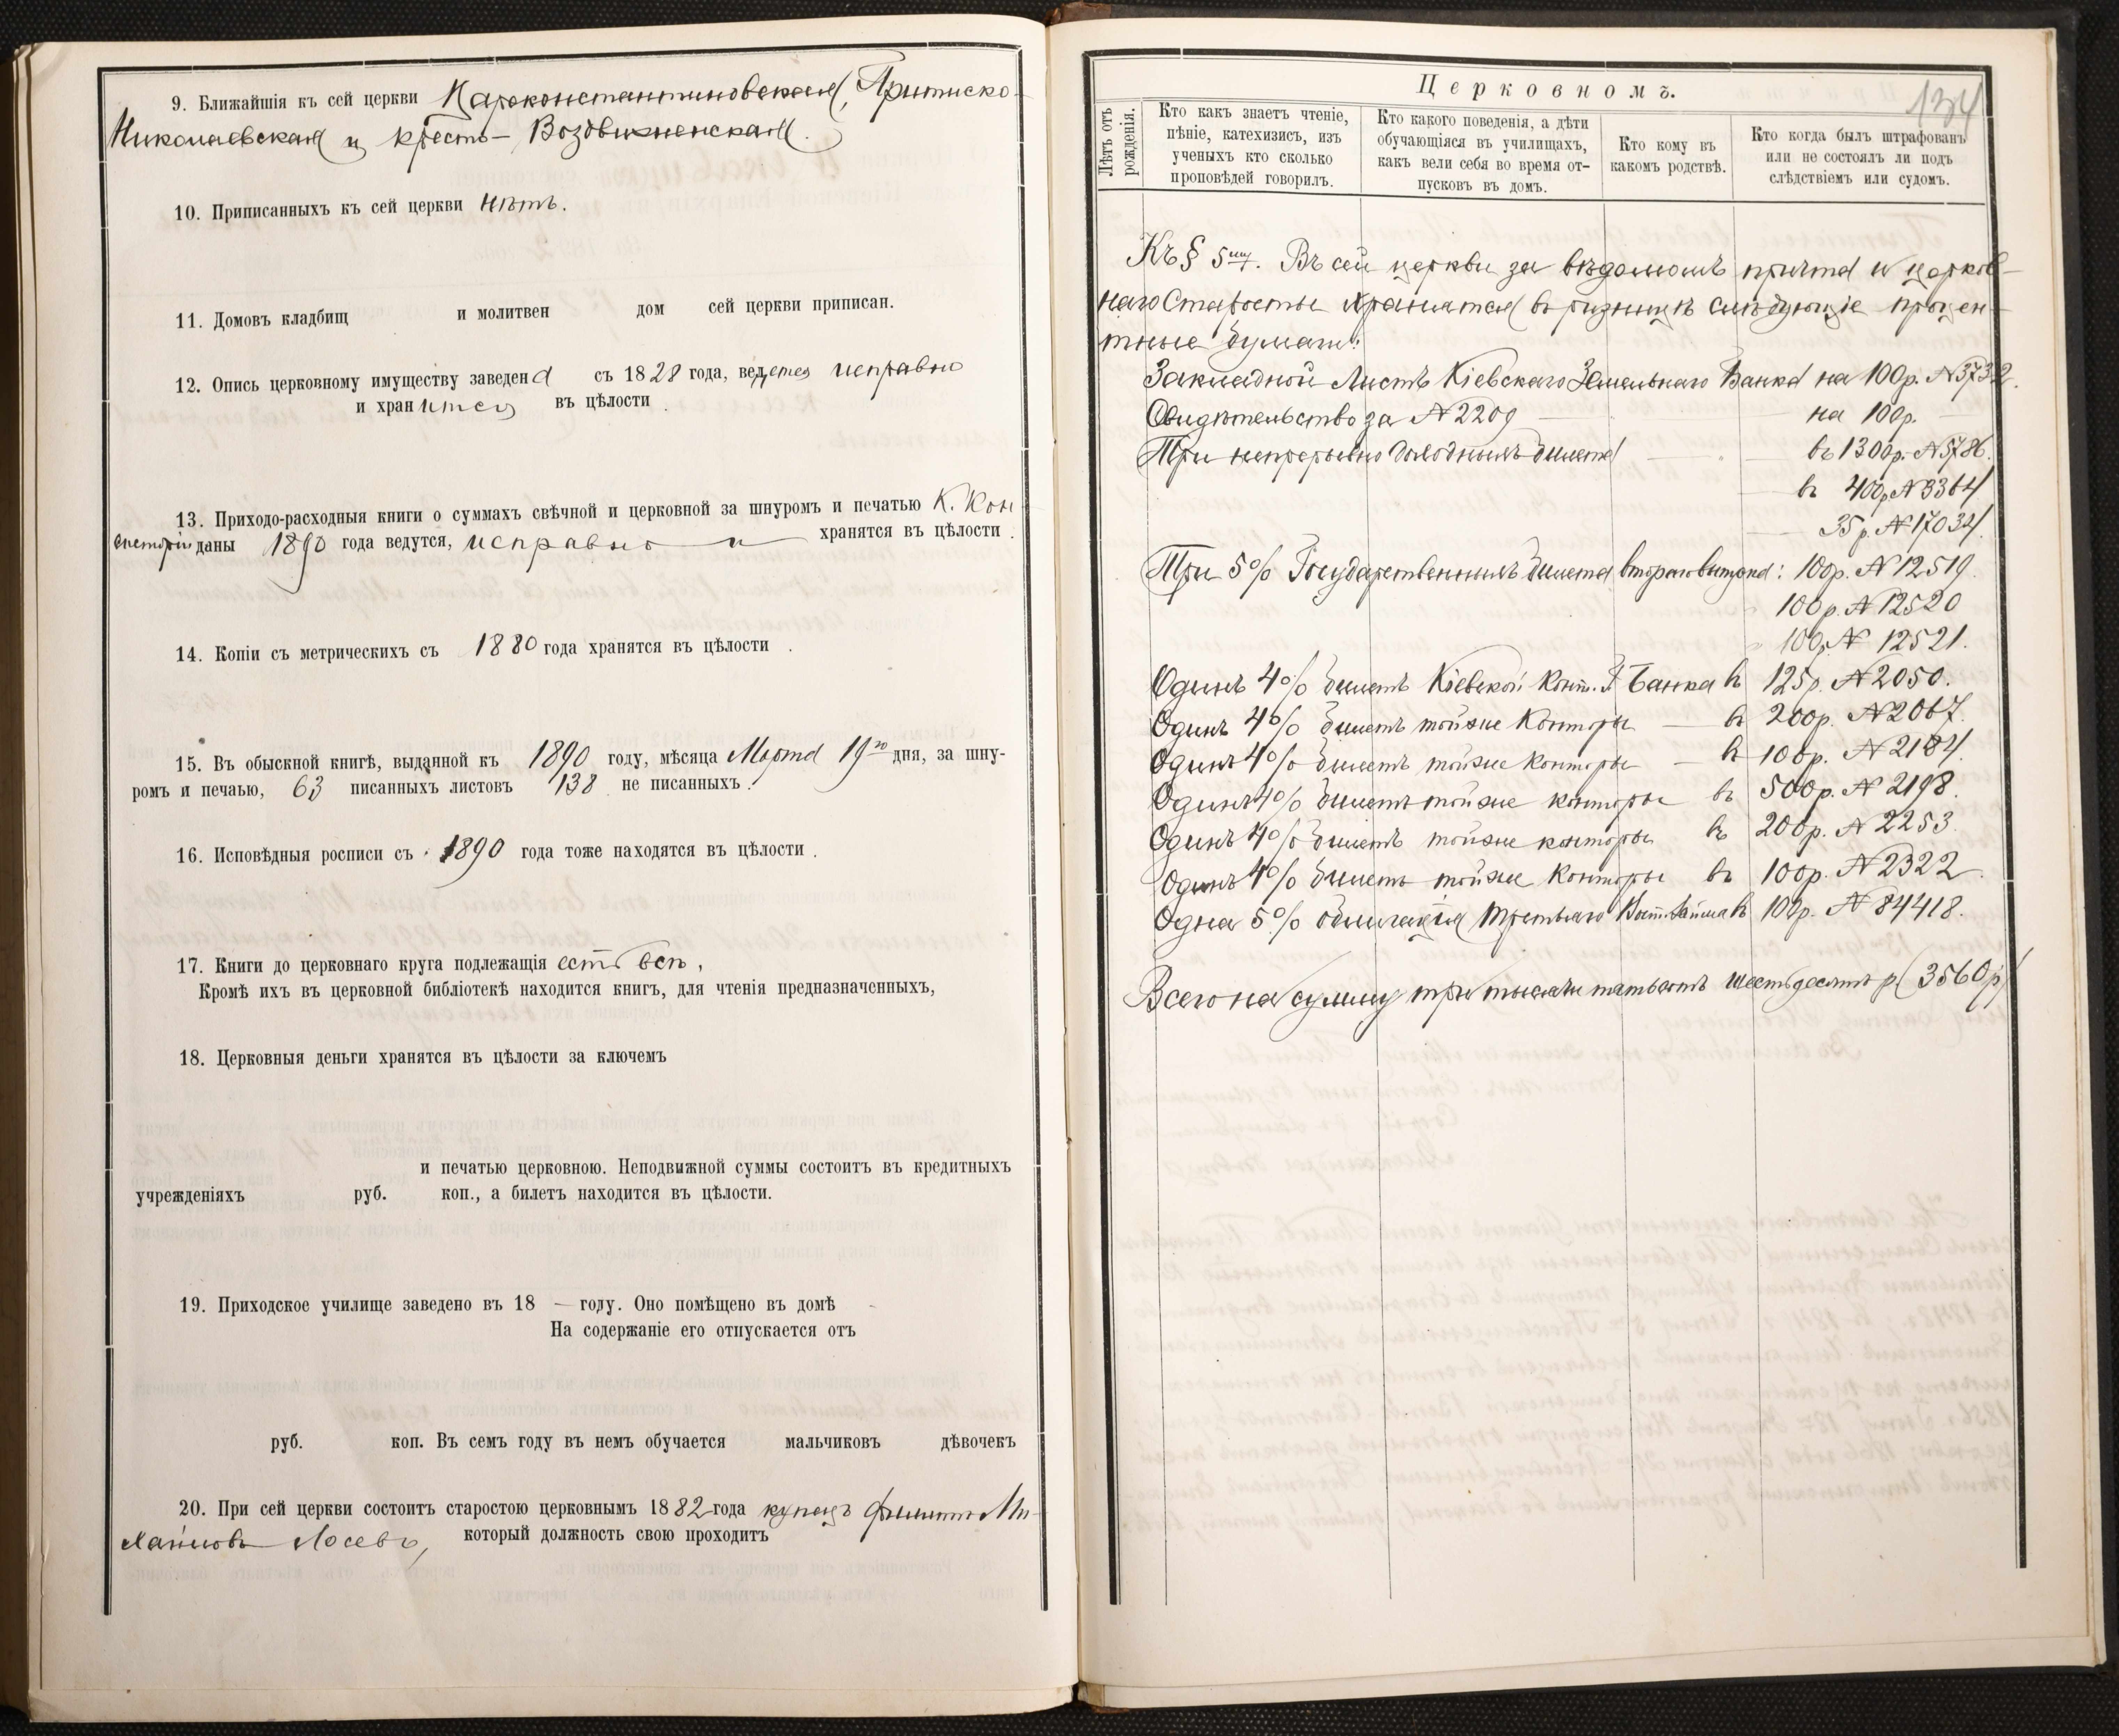 9. Ближайшія къ сей церкви Цареконстантиновская, Притиско-
Николаевская и Кресто-Воздвиженская.
10. Приписанныхъ къ сей церкви нѣтъ.
11. Домовъ кладбищ и молитвен дом сей церкви приписан.
12. Опись церковному имуществу заведена съ 1828 года, ведется исправно
и хранится въ цѣлости.
13. Приходо-расходныя книги о суммахъ свѣчной и церковной за шнуромъ и печатью К. Кон
систоріи даны 1890 года ведутся, исправно и хранятся въ цѣлости.
14. Копіи съ метрическихъ съ 1880 года хранятся въ цѣлости.
15. Въ обыскной книгѣ, выданной къ 1890 году, мѣсяца Марта 19го дня, за шну-
ромъ и печаью, 63 писанныхъ листовъ 138 не писанныхъ.
16. Исповѣдныя росписи съ 1890 года тоже находятся въ цѣлости.
17. Книги до церковнаго круга подлежащія есть всѣ,
Кромѣ ихъ въ церковной библіотекѣ находится книгъ, для чтенія предназначенныхъ,
18. Церковныя деньги хранятся въ цѣлости за ключемъ
и печатью церковною. Неподвижной суммы состоитъ въ кредитныхъ
учрежденіяхъ руб. коп., а билетъ находится въ цѣлости.
19. Приходское училище заведено въ 18 — году. Оно помѣщено въ домѣ -
На содержаніе его отпускается отъ
руб. коп. Въ семъ году въ немъ обучается мальчиковъ дѣвочекъ
20. При сей церкви состоитъ старостою церковнымъ 1882 года купецъ Филиппъ Ми-
хайловъ Лосевъ, который должность свою проходитъ
Церковномъ.
134
Лѣтъ отъ рожденія.
Кто какъ знаетъ чтеніе,
пѣніе, катехизисъ, изъ
ученыхъ кто сколько
проповѣдей говорилъ.
Кто какого поведенія, а дѣти
обучающіяся въ училищахъ,
какъ вели себя во время от-
пусковъ въ домъ.
Кто кому въ
какомъ родствѣ.
Кто когда былъ штрафованъ
или не состоялъ ли подъ
слѣдствіемъ или судомъ.
Къ § 5му. Въ сей церкви за вѣдомомъ причта и церков-
наго Старосты хранятся въ ризницѣ слѣдующіе процен-
тные бумаги:
Закладной Листъ Кіевскаго Земельнаго Банка на 100р. № 3732.
Свидѣтельство за № 2209 — на 100р.
Три непрерывно доходныхъ билета — въ 1300р. № 5786.
въ 400р № 3364
35р. № 17034.
Три 5% Государственныхъ билета втораго выпуска: 100р. № 12519.
100р. № 12520
100р № 12521.
Одинъ 4% билетъ Кіевской Конт. Г. Банка въ 125р. № 2050.
Одинъ 4% билетъ тойже Конторы — въ 200р. № 2067.
Одинъ 4% билетъ тойже Конторы — въ 100р. № 2184.
Одинъ 4% билетъ тойже конторы въ 500р. № 2198.
Одинъ 4% билетъ тойже конторы въ 200р. № 2253.
Одинъ 4% билетъ тойже Конторы въ 100р. № 2322.
Одна 5% облигація третьяго Вост. Займа въ 100р. № 84418.
Всего на сумму три тысячи пятьсотъ шестьдесятъ р (3560р)